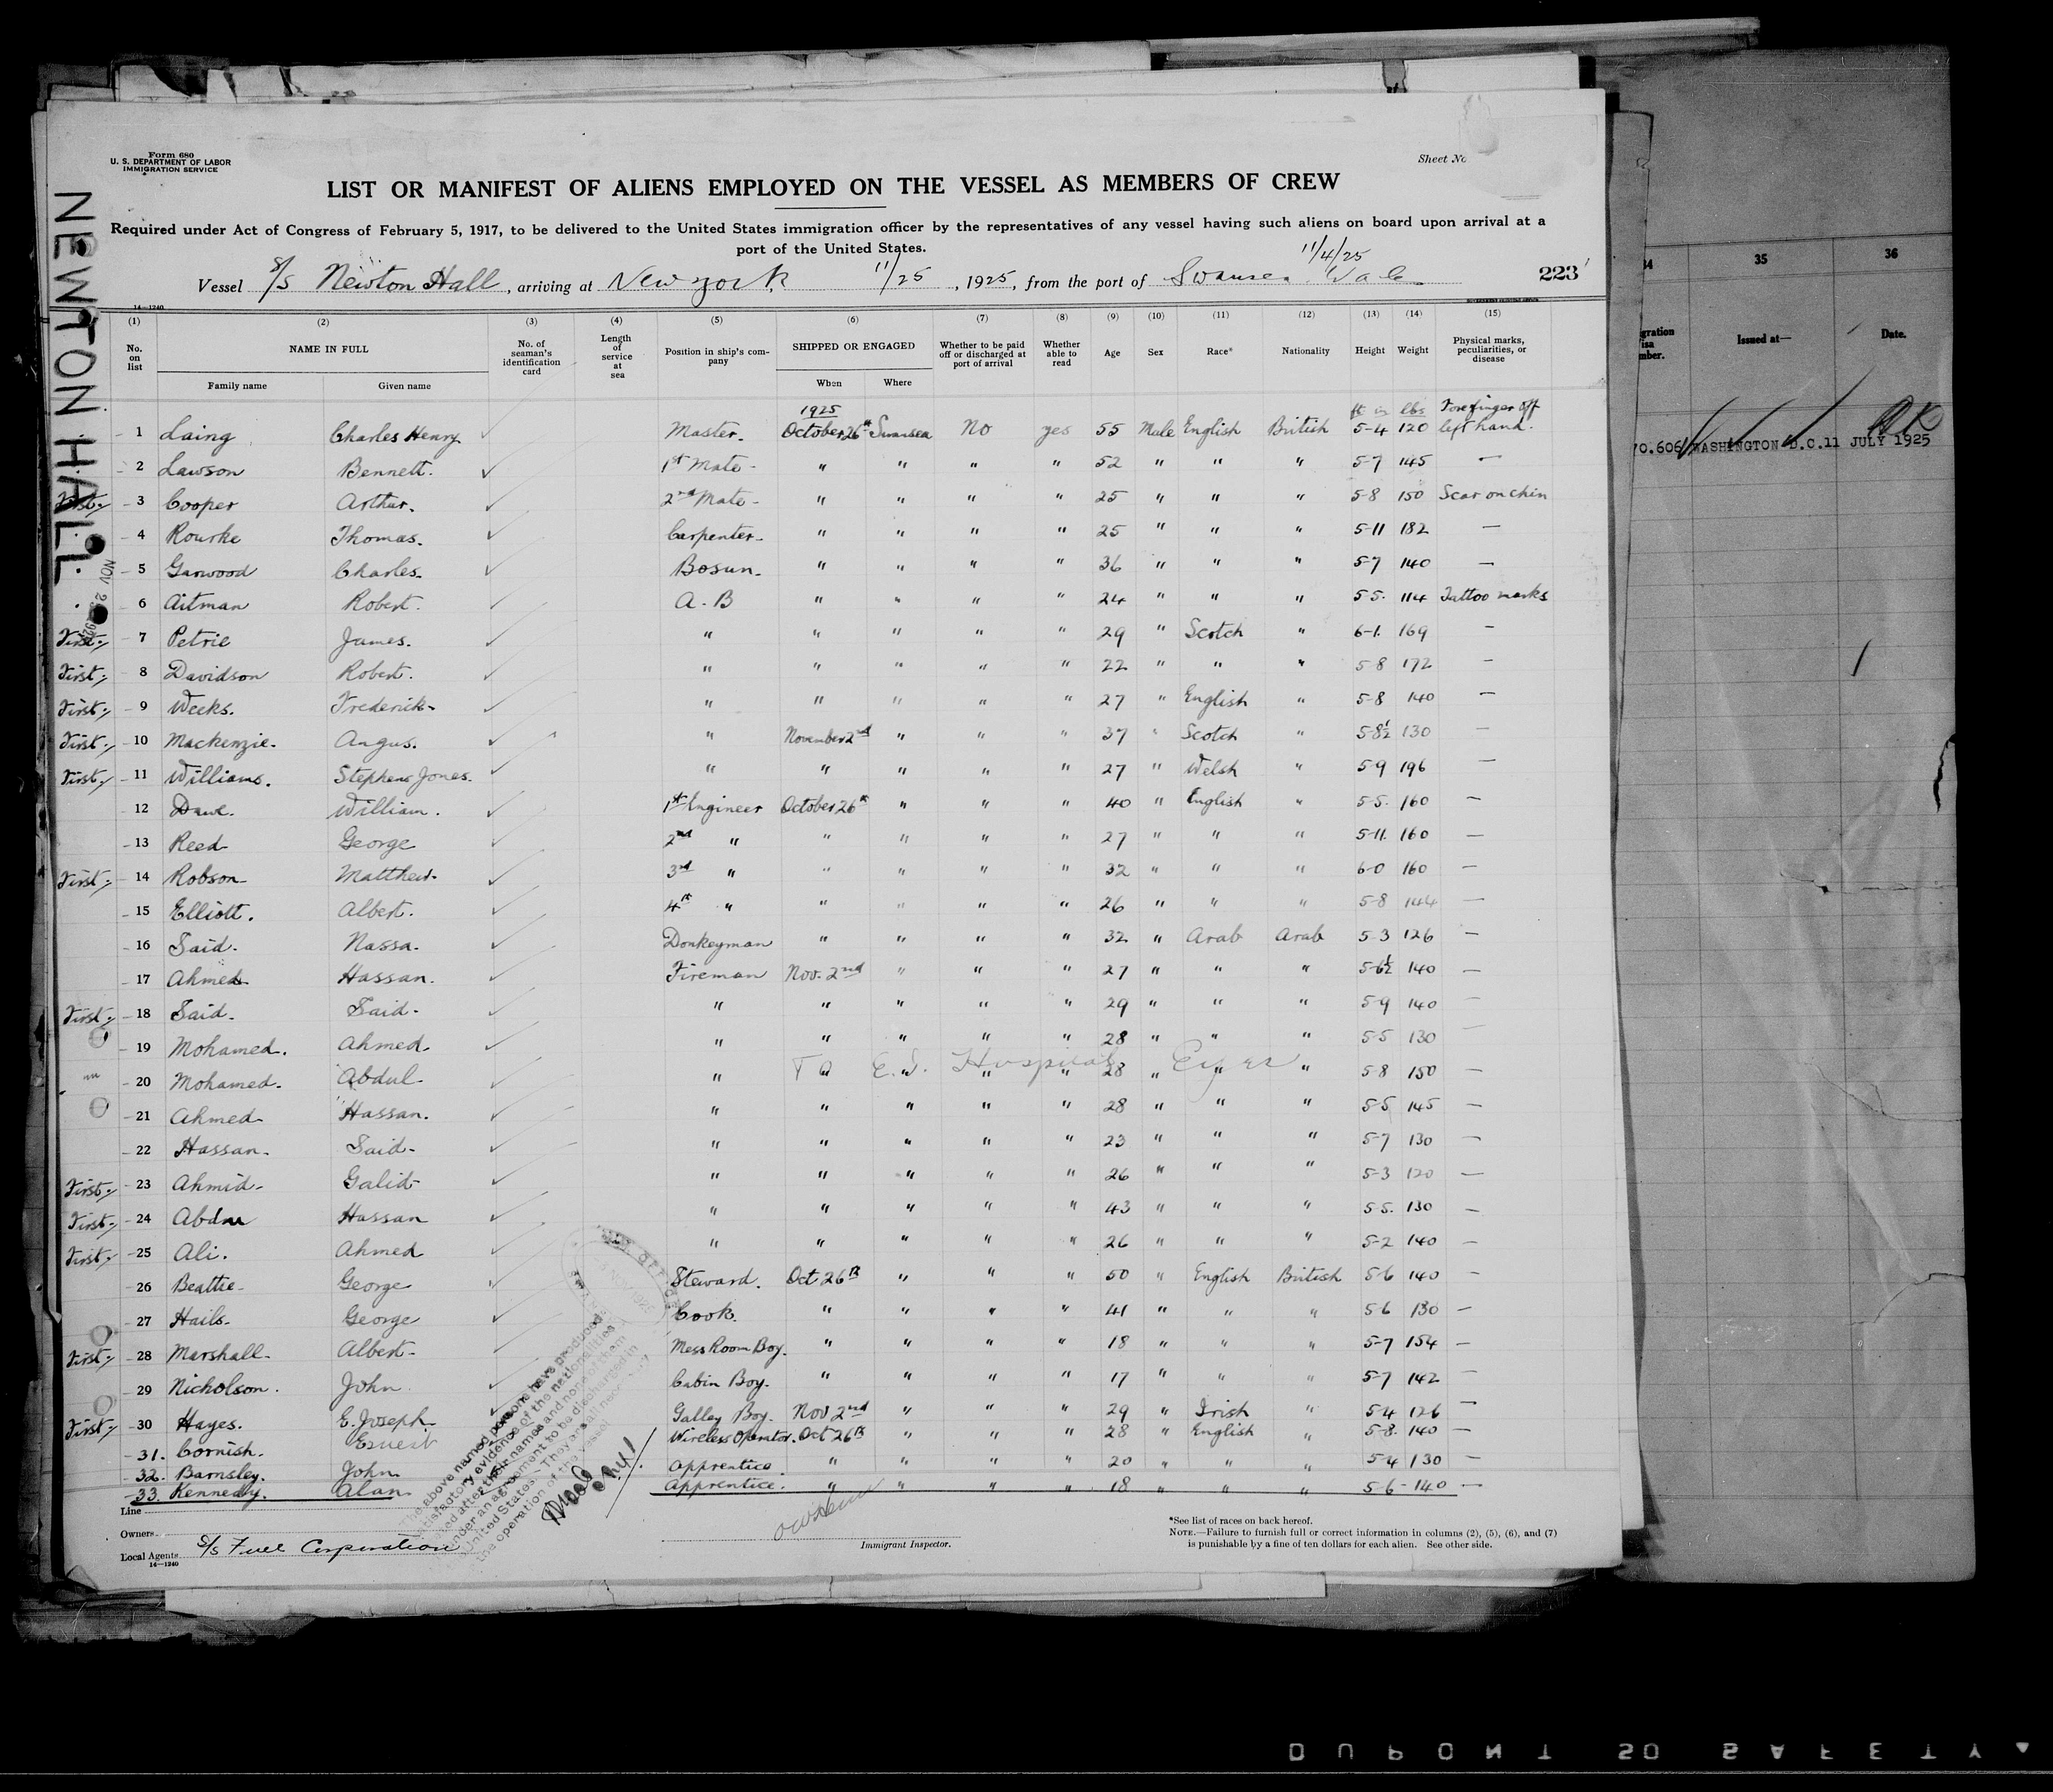 Form 680
U. S. DEPARTMENT OF LABOR
IMMIGRATION SERVICE
Sheet No
LIST OR MANIFEST OF ALIENS EMPLOYED ON THE VESSEL AS MEMBERS OF CREW
Required under Act of Congress of February 5, 1917, to be delivered to the United States immigration officer by the representatives of any vessel having such aliens on board upon arrival at a
port of the United States.
11/4/25
Vessel S/S Newton Hall, arriving at New York 11/25, 1925, from the port of Swansea 223
14—1240
NEWTON HALL
(1) (2) (3) (4) (5) (6) (7) (8) (9) (10) (11) (12) (13) (14) (15)
No. on list NAME IN FULL No. of seaman's identification card Length of service at sea Position in ship's company SHIPPED OR ENGAGED Whether to be paid off or discharged at port of arrival Whether able to read Age Sex Race* Nationality Height Weight Physical marks, peculiarities, or disease
Family name Given name When Where
1925 ft in lbs Forefinger off
1 Laing Charles Henry Master. October 26th Swansea No yes 55 Male English British 5-4 120 left hand.
2 Lawson Bennett. 1st Mate - " " " " 52 " " " 5-7 145 —
First 3 Cooper Arthur. 2nd Mate - " " " " 25 " " " 5-8 150 Scar on chin
4 Rourke Thomas. Carpenter - " " " " 25 " " " 5-11 182 —
5 Garwood Charles. Bosun - " " " " 36 " " " 5-7 140 —
6 Aitman Robert. A.B " " " " 24 " " " 5-5. 114 Tattoo marks
First 7 Petrie James. " " " " " 29 " Scotch " 6-1. 169 —
First 8 Davidson Robert. " " " " " 22 " " " 5-8 172 —
First 9 Weeks. Frederick " " " " " 27 " English " 5-8 140 —
First 10 Mackenzie. Angus. " November 2nd " " " 37 " Scotch " 5-8½ 130 —
First 11 Williams. Stephens Jones. " " " " " 27 " Welsh " 5-9 196 —
12 William. 1st Engineer October 26th " " " 40 " English " 5-5. 160 —
13 Reed George 2nd " " " " " 27 " " " 5-11. 160 —
First 14 Robson Matthew. 3rd " " " " " 32 " " " 6-0 160 —
15 Elliott. Albert. 4th " " " " " 26 " " " 5-8 144 —
16 Said. Nassa. Donkeyman " " " " 32 " Arab Arab 5-3 126 —
17 Ahmed Hassan. Fireman Nov. 2nd " " " 27 " " " 5-6½ 140 —
First 18 Said. Said. " " " " " 29 " " " 5-9 140 —
19 Mohamed. Ahmed. " " " " " 28 " " " 5-5 130
To E.I. Hospital Eyes
20 Mohamed. Abdul. " " " " " 28 " " " 5-8 150 —
21 Ahmed Hassan. " " " " " 28 " " " 5-5 145 —
22 Hassan. Said. " " " " " 23 " " " 5-7 130 —
First 23 Ahmid Galid " " " " " 26 " " " 5-3 120 —
First 24 Hassan " " " " " 43 " " " 5-5. 130 —
First 25 Ali. Ahmed " " " " " 26 " " " 5-2 140 —
26 Beattie George Steward. Oct 26th " " " 50 " English British 5-6 140 —
27 Hails. George Cook. " " " " 41 " " " 5-6 130 —
First 28 Marshall. Albert Mess Room Boy. " " " " 18 " " " 5-7 154 —
29 Nicholson. John Cabin Boy. " " " " 17 " " " 5-7 142 —
First 30 Hayes. E. Joseph Galley Boy. Nov 2nd " " " 29 " Irish " 5-4 126 —
31. Cornish. Ernest Wireless Operator. Oct 26th " " " 28 " English " 5-8. 140 —
32. Barnsley. John Apprentice " " " " 20 " " " 5-4 130 —
33. Kennedy. Alan Apprentice. " " " " 18 " " " 5-6 - 140 —
The above named persons have produced
satisfactory evidence of the nationalities
stated after their names and none of them
under an agreement to be discharged in
United States. - They are all
the operation of the vessel
Line
Owners
Local Agents S/S Fuel Corporation
14—1240
Immigrant Inspector.
*See list of races on back hereof.
NOTE.—Failure to furnish full or correct information in columns (2), (5), (6), and (7)
is punishable by a fine of ten dollars for each alien. See other side.
34 35 36
Issued at— Date.
70.606 WASHINGTON D.C. 11 JULY 1925
DUPONT 50 SAFETY